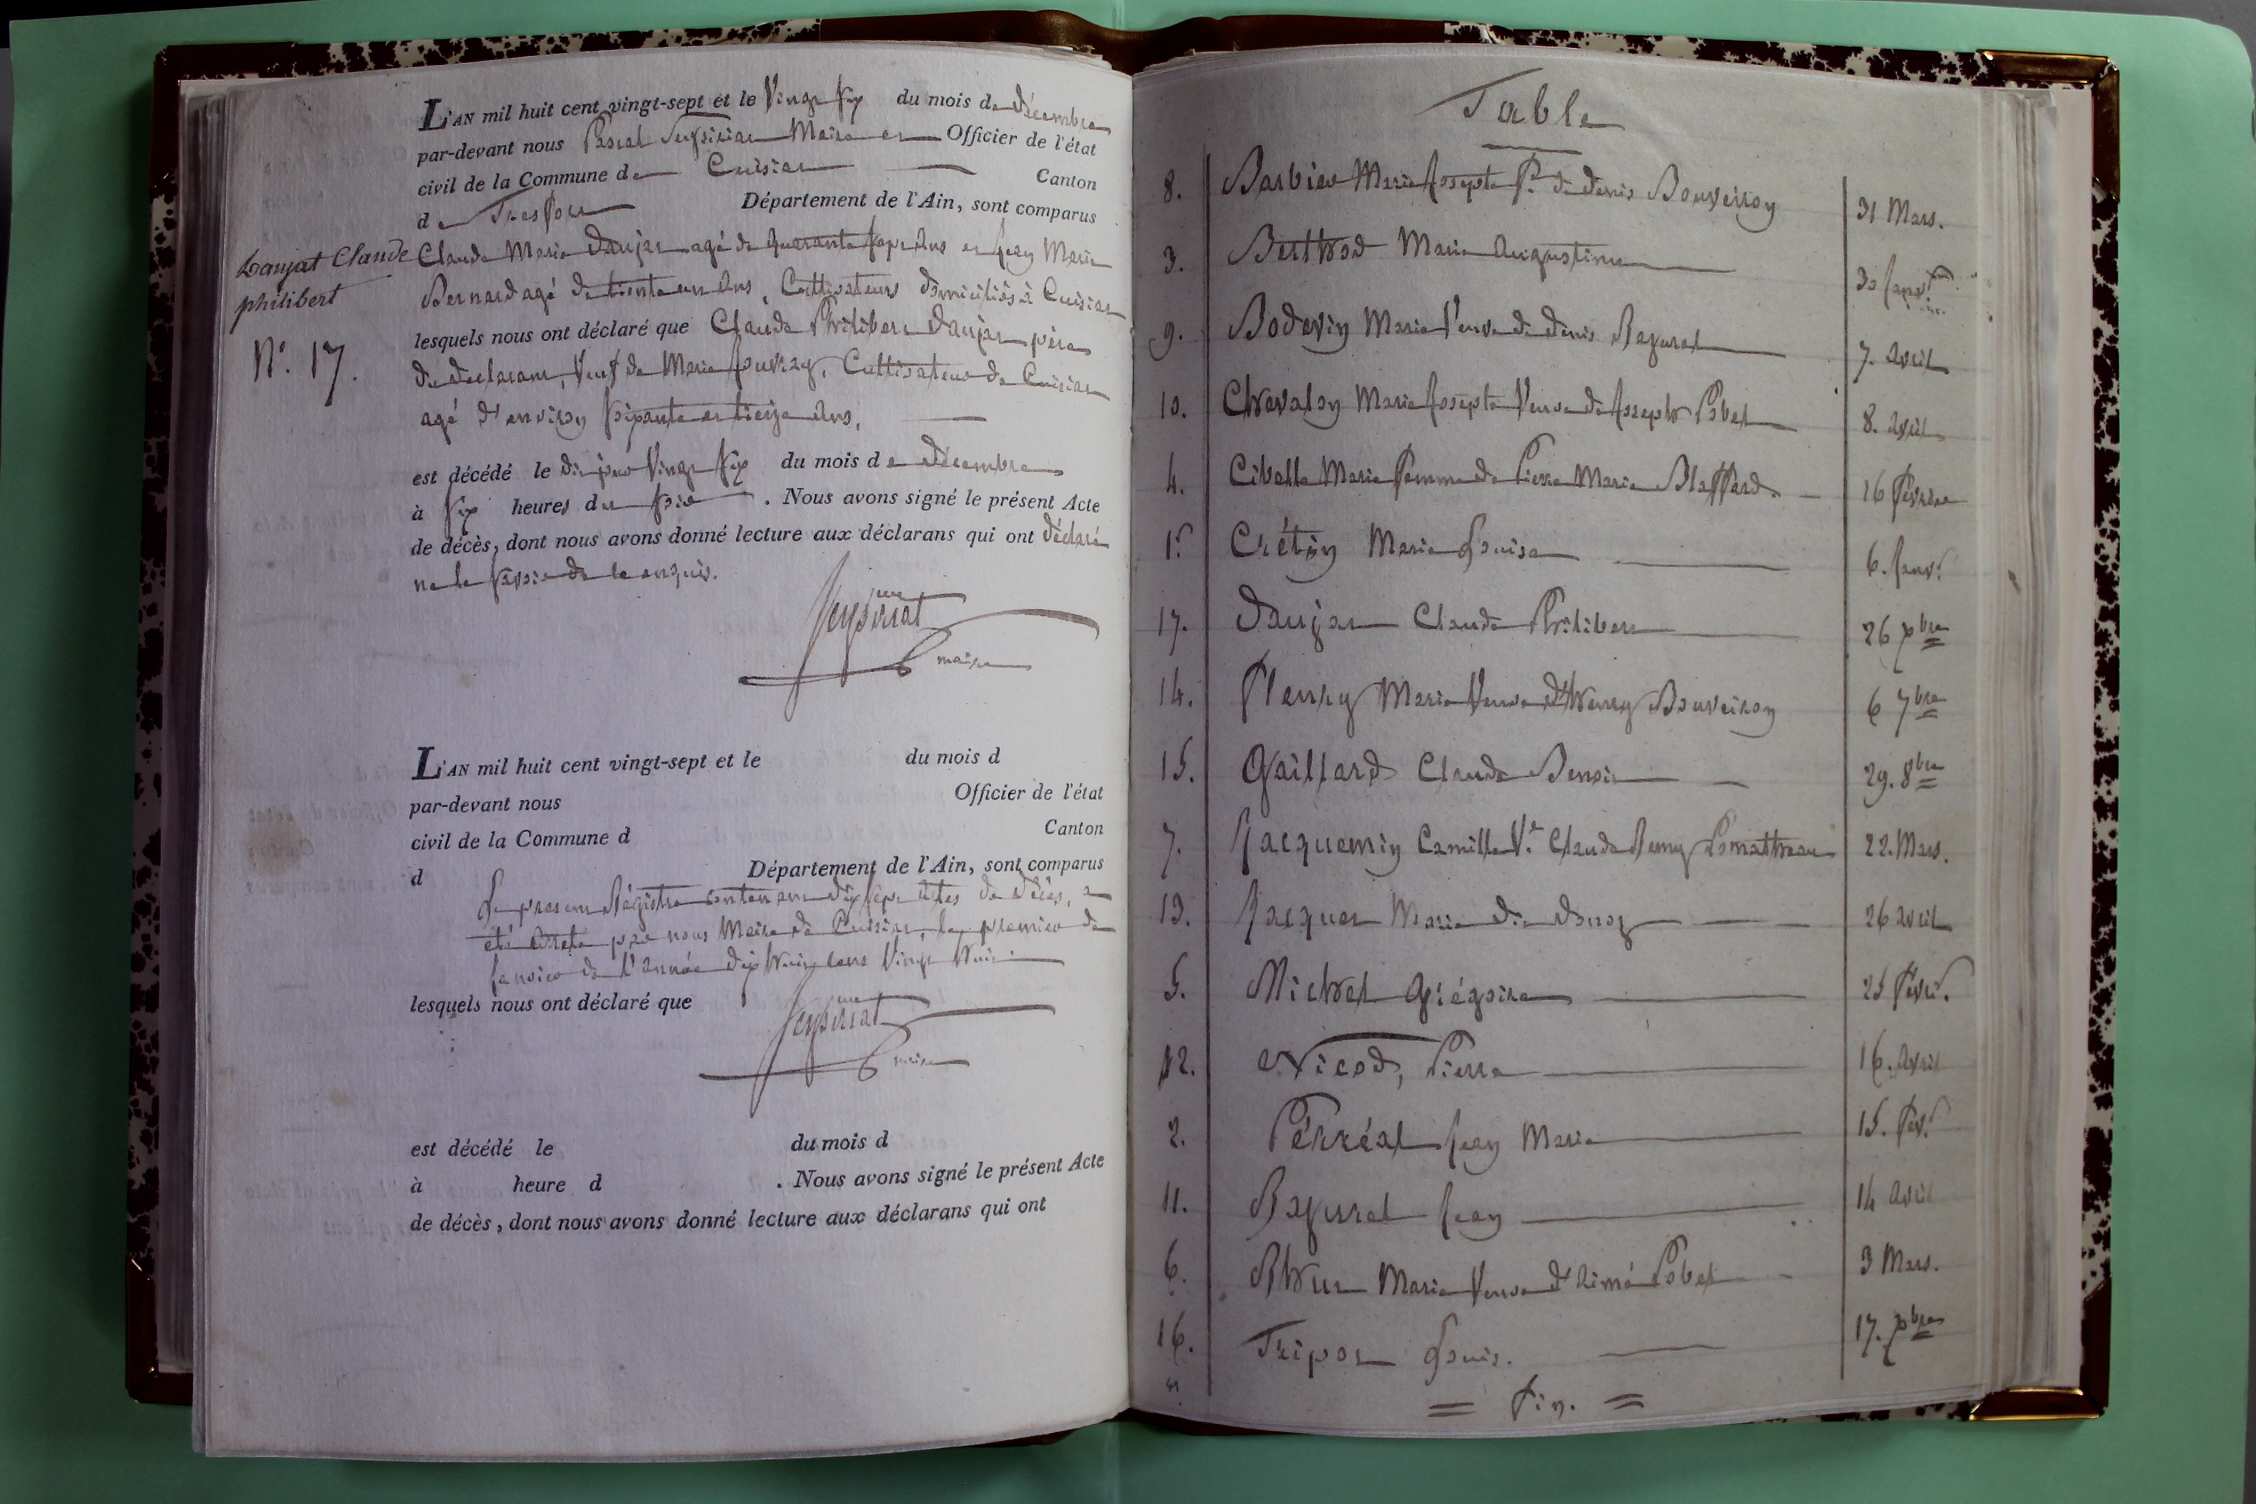 L'AN mil huit cent vingt-sept et le Vingt Six du mois de décembre
par-devant nous Pascal Seyssirat Maire et Officier de l'état
civil de la Commune de Cuisiat Canton
de Treffort Département de l'Ain, sont comparus
Claude Marie Daujat agé de quarante sept ans et Jean Marie
Bernard agé de trente un ans, Cultivateurs domiciliés à Cuisiat
lesquels nous ont déclaré que Claude Philibert Daujat père
du declarant, Veuf de Marie Jouvray, Cultivateur de Cuisiat
agé d'environ soixante et treize ans,
est décédé le dit jour Vingt Six du mois de décembre
à Six heures du soir. Nous avons signé le présent Acte
de décès, dont nous avons donné lecture aux déclarans qui ont déclaré
ne le savoir de ce enquis.
maire
Daujat Claude
philibert
N.° 17.
L'AN mil huit cent vingt-sept et le du mois d
par-devant nous Officier de l'état
civil de la Commune d Canton
d Département de l'Ain, sont comparus
Le present Régistre contenant dix sept Actes de décès, a
été arrêté par nous Maire de Cuisiat, le premier de
Janvier de l'année dix huit cent Vingt huit.
lesquels nous ont déclaré que
maire
est décédé le du mois d
à heure d . Nous avons signé le présent Acte
de décès, dont nous avons donné lecture aux déclarans qui ont
Table
8. Barbier Marie Josepte f.e de Denis Bouveiron 31 Mars.
3. Berthod Marie Augustine 30 Janv.
9. Bodevin Marie Veuve de Denis Rayurel 7. avril
10. Chevalon Marie Josepte Veuve de Joseph Pobel 8. avril
4. Cibelle Marie femme de Pierre Marie Blaffard 16 février
1.r Crétin Marie Louise 6. Janv.r
17. Daujat Claude Philibert 26 xbre
14. Fleury Marie Veuve d'henry Bouveiron 6 7bre
15. Gaillard Claude Benoit 29. 8bre
7. Jacquemin Camille V.e Claude Remy Pomathieu 22. Mars.
13. Jacquet Marie dit 26 avril
5. Michel Grégoire 25 févr.
12. Nicod, Pierre 16. avril
2. Perréal Jean Marie 15. fév.r
11. Rayurel Jean 14 avril
6. Rhut Marie Veuve d'Aimé Pobel 3 Mars.
16. Tripoz Louis. 17. xbre
= fin. =